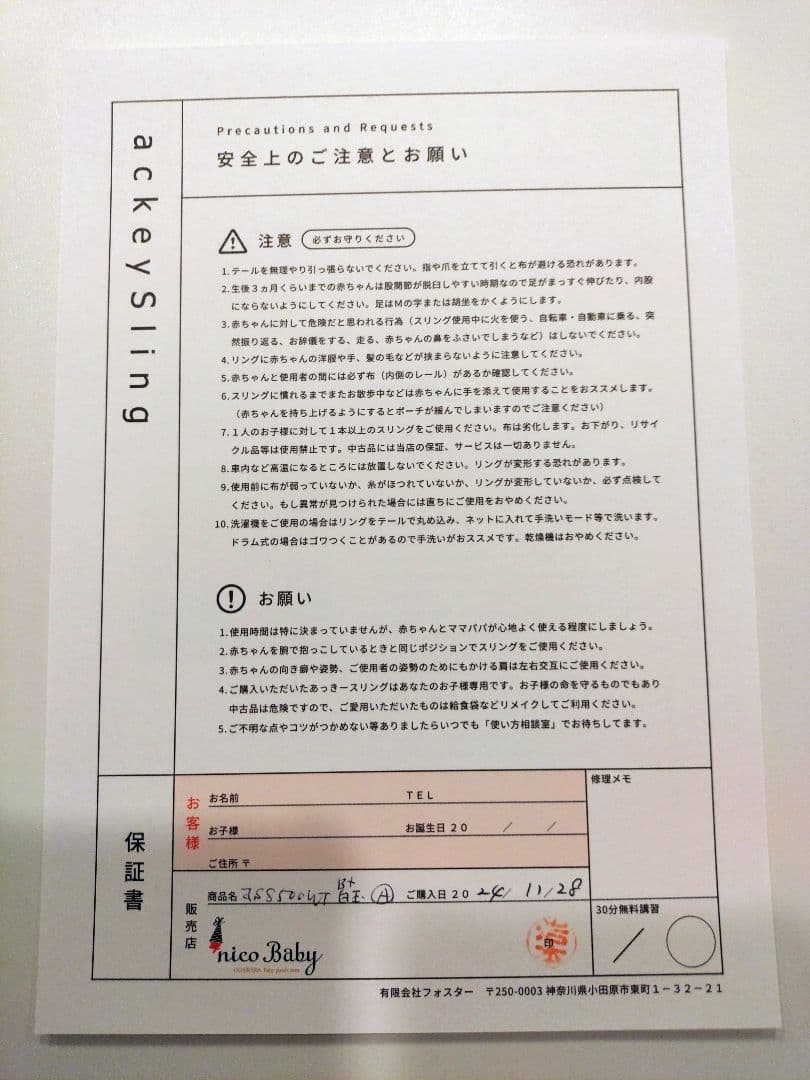 ackeySling
Precautions and Requests
安全上のご注意とお願い
注意 必ずお守りください
1.テールを無理やり引っ張らないでください。指や爪を立てて引くと布が避ける恐れがあります。
2.生後3ヵ月くらいまでの赤ちゃんは股関節が脱臼しやすい時期なので足がまっすぐ伸びたり、内股
にならないようにしてください。足はMの字または胡坐をかくようにします。
3.赤ちゃんに対して危険だと思われる行為（スリング使用中に火を使う、自転車・自動車に乗る、突
然振り返る、お辞儀をする、走る、赤ちゃんの鼻をふさいでしまうなど）はしないでください。
4.リングに赤ちゃんの洋服や手、髪の毛などが挟まらないように注意してください。
5.赤ちゃんと使用者の間には必ず布（内側のレール）があるか確認してください。
6.スリングに慣れるまでまたお散歩中などは赤ちゃんに手を添えて使用することをおススメします。
（赤ちゃんを持ち上げるようにするとポーチが緩んでしまいますのでご注意ください）
7.1人のお子様に対して1本以上のスリングをご使用ください。布は劣化します。お下がり、リサイ
クル品等は使用禁止です。中古品には当店の保証、サービスは一切ありません。
8.車内など高温になるところには放置しないでください。リングが変形する恐れがあります。
9.使用前に布が弱っていないか、糸がほつれていないか、リングが変形していないか、必ず点検して
ください。もし異常が見つけられた場合には直ちにご使用をおやめください。
10.洗濯機をご使用の場合はリングをテールで丸め込み、ネットに入れて手洗いモード等で洗います。
ドラム式の場合はゴワつくことがあるので手洗いがおススメです。乾燥機はおやめください。
お願い
1.使用時間は特に決まっていませんが、赤ちゃんとママパパが心地よく使える程度にしましょう。
2.赤ちゃんを腕で抱っこしているときと同じポジションでスリングをご使用ください。
3.赤ちゃんの向き癖や姿勢、ご使用者の姿勢のためにもかける肩は左右交互にご使用ください。
4.ご購入いただいたあっきースリングはあなたのお子様専用です。お子様の命を守るものでもあり
中古品は危険ですので、ご愛用いただいたものは給食袋などリメイクしてご利用ください。
5.ご不明な点やコツがつかめない等ありましたらいつでも「使い方相談室」でお待ちしてます。
保証書
お客様
お名前 TEL
お子様 お誕生日 20 / /
ご住所 〒
修理メモ
販売店
商品名 Ⓐ ご購入日 20 24/ 11/28
nico Baby
印
30分無料講習
/
有限会社フォスター 〒250-0003 神奈川県小田原市東町1-32-21